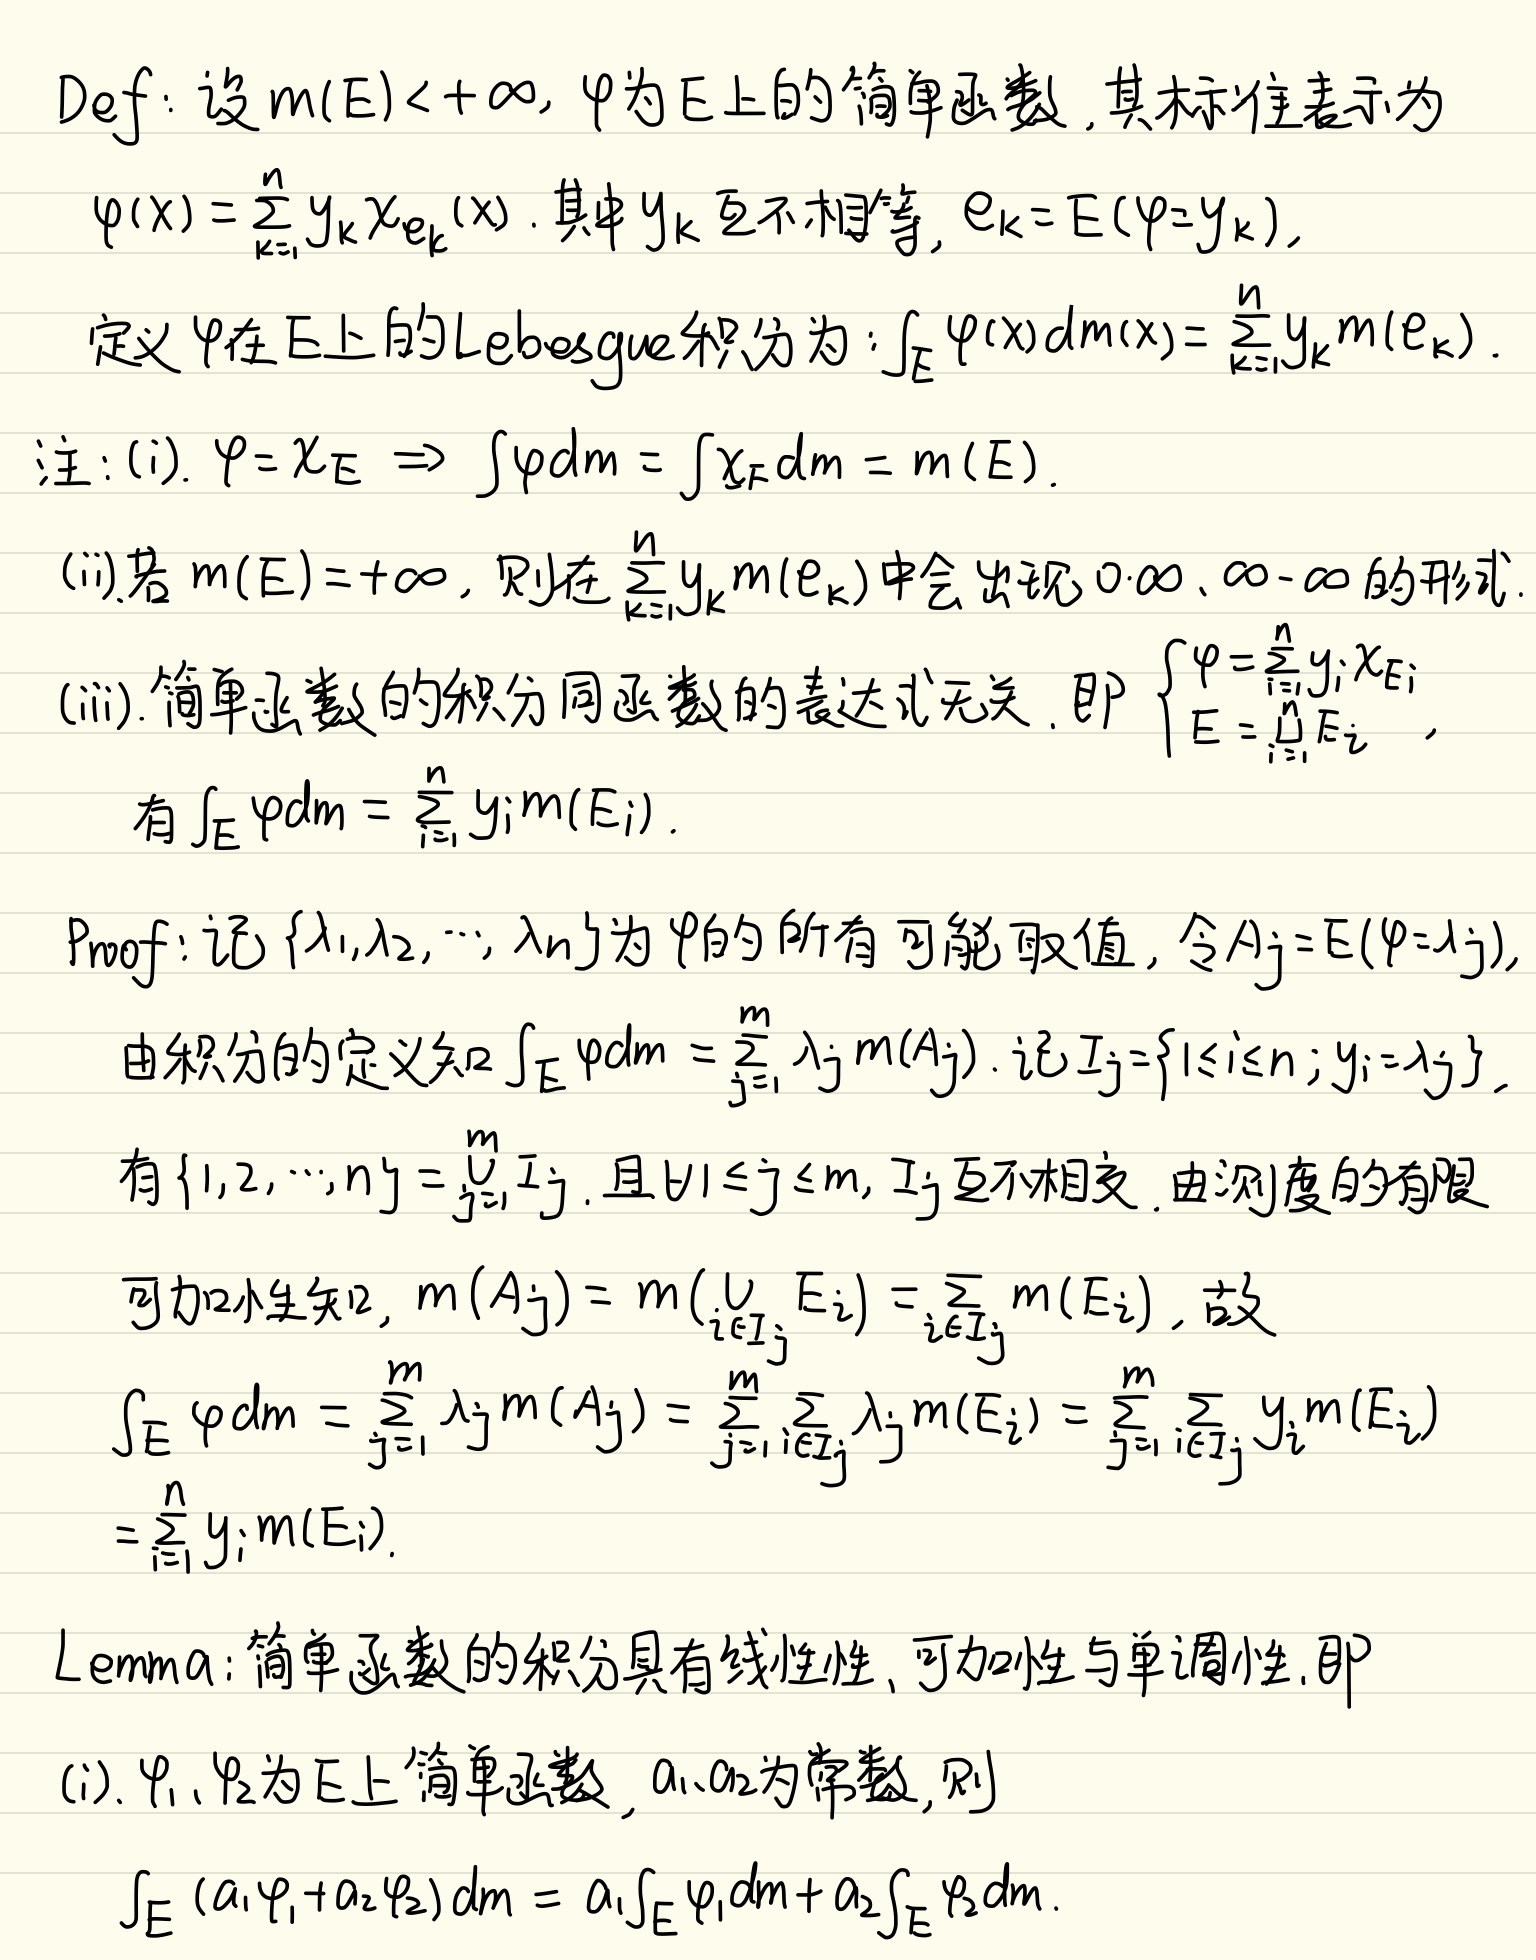 Def: 设 m(E) < +∞, φ为E上的简单函数, 其标准表示为
φ(x) = ∑_{k=1}^{n} y_k χ_{e_k}(x). 其中 y_k 互不相等, e_k = E(φ=y_k),
定义 φ在E上的Lebesgue积分为: ∫_E φ(x)dm(x) = ∑_{k=1}^{n} y_k m(e_k).
注: (i). φ = χ_E ⇒ ∫φdm = ∫χ_E dm = m(E).
(ii). 若 m(E) = +∞, 则在 ∑_{k=1}^{n} y_k m(e_k) 中会出现 0·∞、∞-∞ 的形式.
(iii). 简单函数的积分同函数的表达式无关. 即 { φ = ∑_{i=1}^{n} y_i χ_{E_i}
E = ⨆_{i=1}^{n} E_i ,
有 ∫_E φdm = ∑_{i=1}^{n} y_i m(E_i).
Proof: 记 {λ_1, λ_2, ⋯, λ_n} 为 φ的所有可能取值, 令 A_j = E(φ=λ_j),
由积分的定义知 ∫_E φdm = ∑_{j=1}^{m} λ_j m(A_j). 记 I_j = {1≤i≤n; y_i=λ_j},
有 {1, 2, ⋯, n} = ∪_{j=1}^{m} I_j. 且 ∀1≤j≤m, I_j 互不相交. 由测度的有限
可加性知, m(A_j) = m(∪_{i∈I_j} E_i) = ∑_{i∈I_j} m(E_i), 故
∫_E φdm = ∑_{j=1}^{m} λ_j m(A_j) = ∑_{j=1}^{m} ∑_{i∈I_j} λ_j m(E_i) = ∑_{j=1}^{m} ∑_{i∈I_j} y_i m(E_i)
= ∑_{i=1}^{n} y_i m(E_i).
Lemma: 简单函数的积分具有线性性、可加性与单调性. 即
(i). φ_1、φ_2为E上简单函数, a_1、a_2为常数, 则
∫_E (a_1φ_1 + a_2φ_2)dm = a_1∫_E φ_1dm + a_2∫_E φ_2dm.